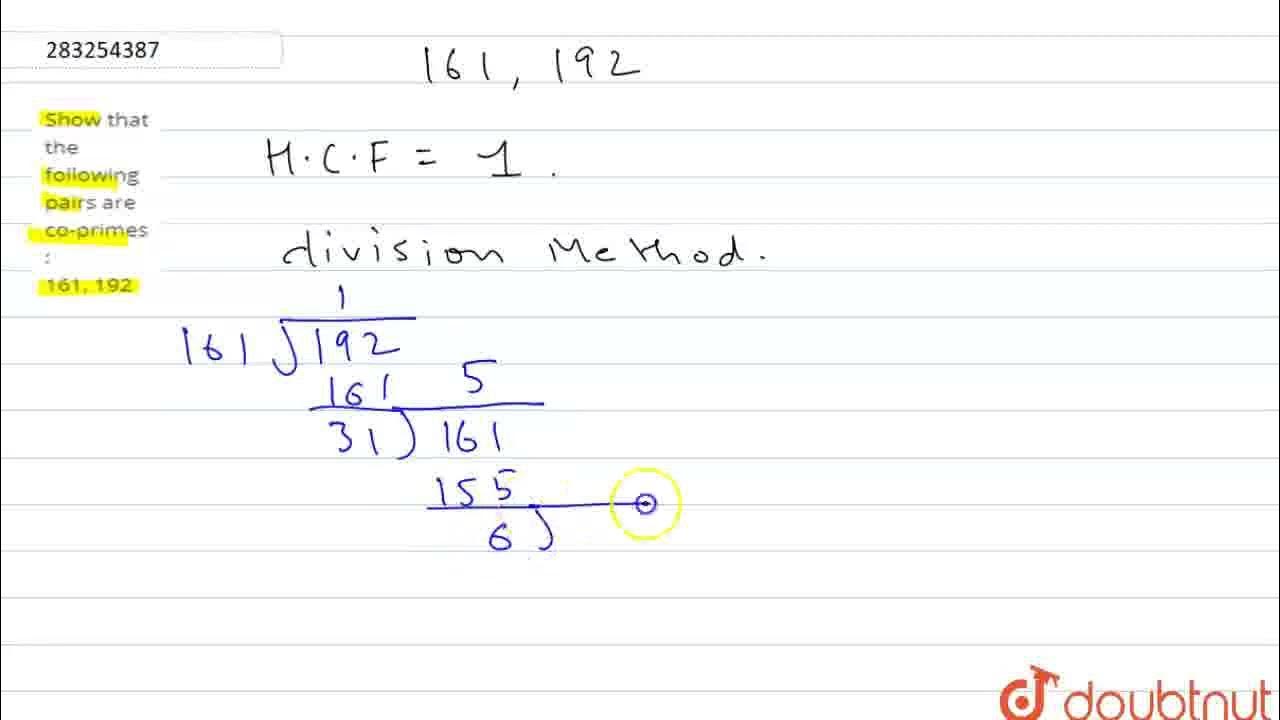 283254387
Show that
the
following
pairs are
co-primes
:
161, 192
161, 192
H.C.F = 1.
division Method.
1
161 192
161 5
31) 161
155
6)
doubtnut